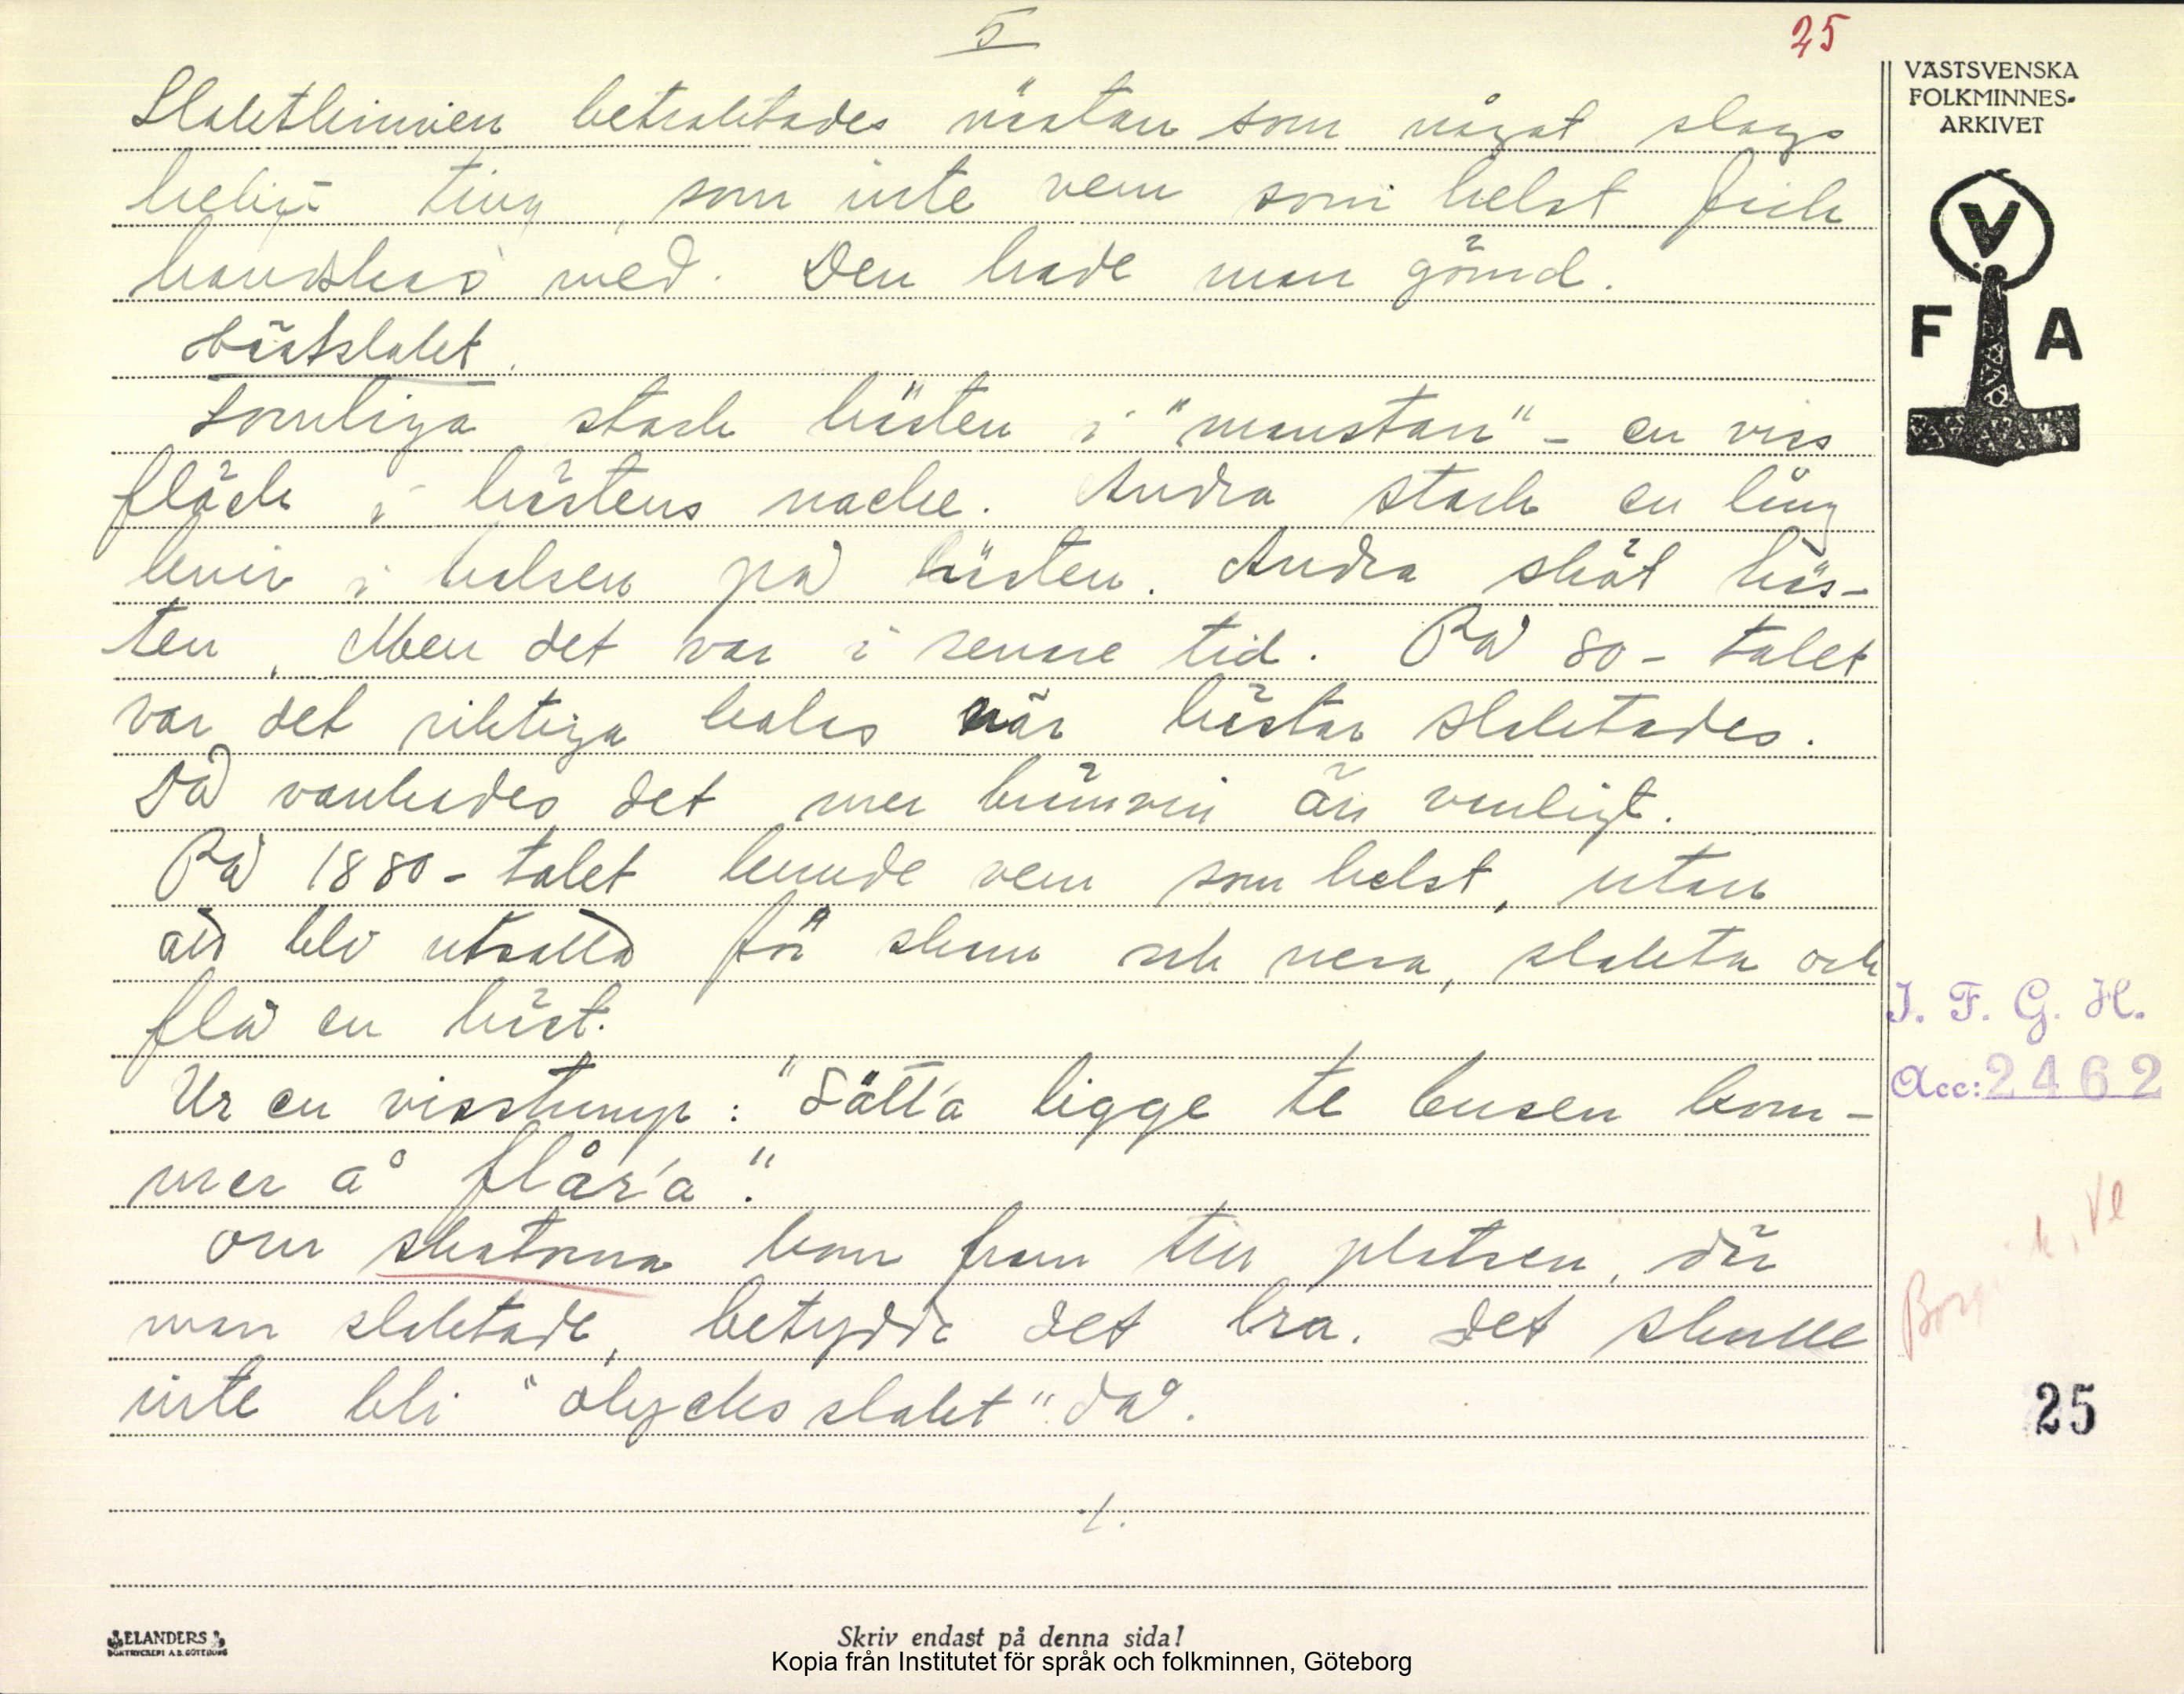 5
25
VÄSTSVENSKA
FOLKMINNES-
ARKIVET
V
F A
Slaktkniven betraktades nästan som något slags
heligt ting, som inte vem som helst fick
handskas med. Den hade man gömd.
Hästslakt.
Somliga stack hästen i "munstan" - en viss
fläck i hästens nacke. Andra stack en lång
kniv i halsen på hästen. Andra sköt häs-
ten. Men det var i senare tid. På 80-talet
var det riktiga kalas när hästar slaktades.
Då vankades det mer brännvin än vanligt.
På 1880-talet kunde vem som helst, utan
att bli utsatta för skam och vera, slakta och
flå en häst.
Ur en visstump: "Lätt'a ligge te busen kom-
mer å flår'a".
Om skatorna kom fram till platsen, där
man slaktade, betydde det bra. Det skulle
inte bli "olycksslakt" då.
./.
I. F. G. H.
Acc: 2462
25
ELANDERS
BOKTRYCKERI A.B. GÖTEBORG
Skriv endast på denna sida!
Kopia från Institutet för språk och folkminnen, Göteborg